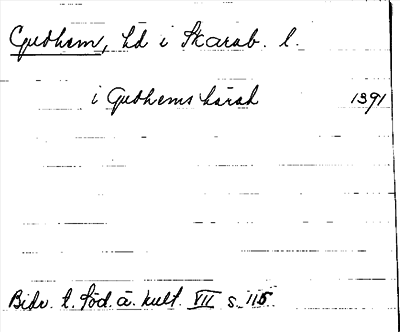 Gudhem, hd i Skarab. l.
i Gudhems härad 1391
Bidr. t. söd. ä. kult. VII s. 115